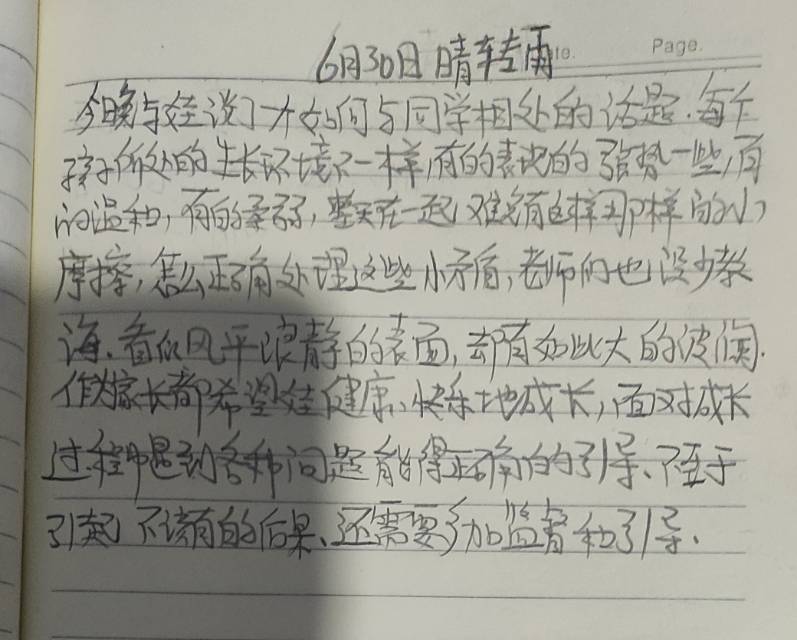 6月30日 晴转雨
Page.
今晚与娃谈了如何与同学相处的话题.每个
孩子所处的生长环境不一样,有的表现的强势一些,有
的温和,有的柔弱,整天在一起难免有这样那样的小
摩擦,怎么正确处理这些小矛盾,老师们也没少教
诲.看似风平浪静的表面,却有如此大的波澜.
作为家长都希望娃健康、快乐地成长,面对成长
过程中遇到各种问题能得正确的的引导、不至于
引起不该有的后果、还需要多加监督和引导.